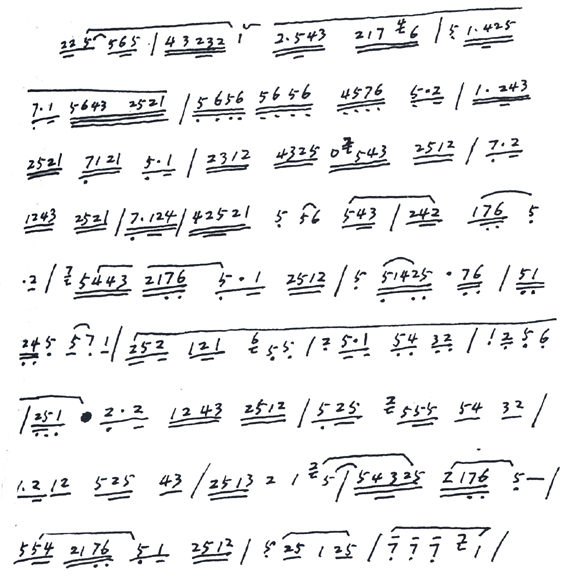 225 565 / 43232 1 2.543 217 6 / 5 1.425
7.1 5643 2521 / 5656 5656 4576 5.2 / 1.243
2521 7121 5.1 / 2312 4325 0 543 2512 / 7.2
1243 2521 / 7.124 / 42521 5 56 543 / 242 176 5
.2 / 7 5443 2176 5.1 2512 / 5 51425 .76 / 51
245 571 / 252 121 6 55 / 2 5.1 54 32 / 1256
/ 251 • 2.2 1243 2512 / 525 2 555 54 32 /
1.212 525 43 / 2513 2 1 2 5 / 54325 2176 5 — /
554 2176 51 2512 / 5 25 125 / 7 7 7 2 1 /